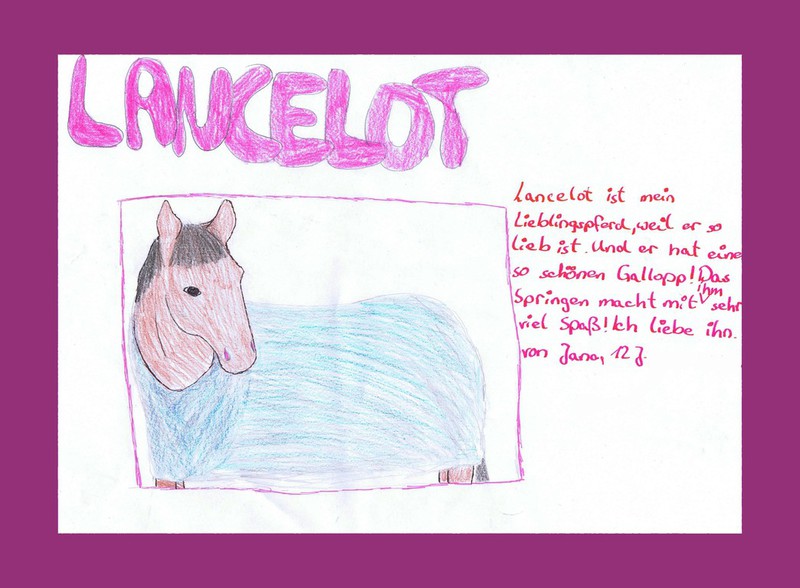 LANCELOT
Lancelot ist mein
Lieblingspferd, weil er so
lieb ist. Und er hat eine
so schönen Gallopp! Das
Springen macht mit ihm sehr
viel Spaß! Ich liebe ihn.
von Jana, 12 J.